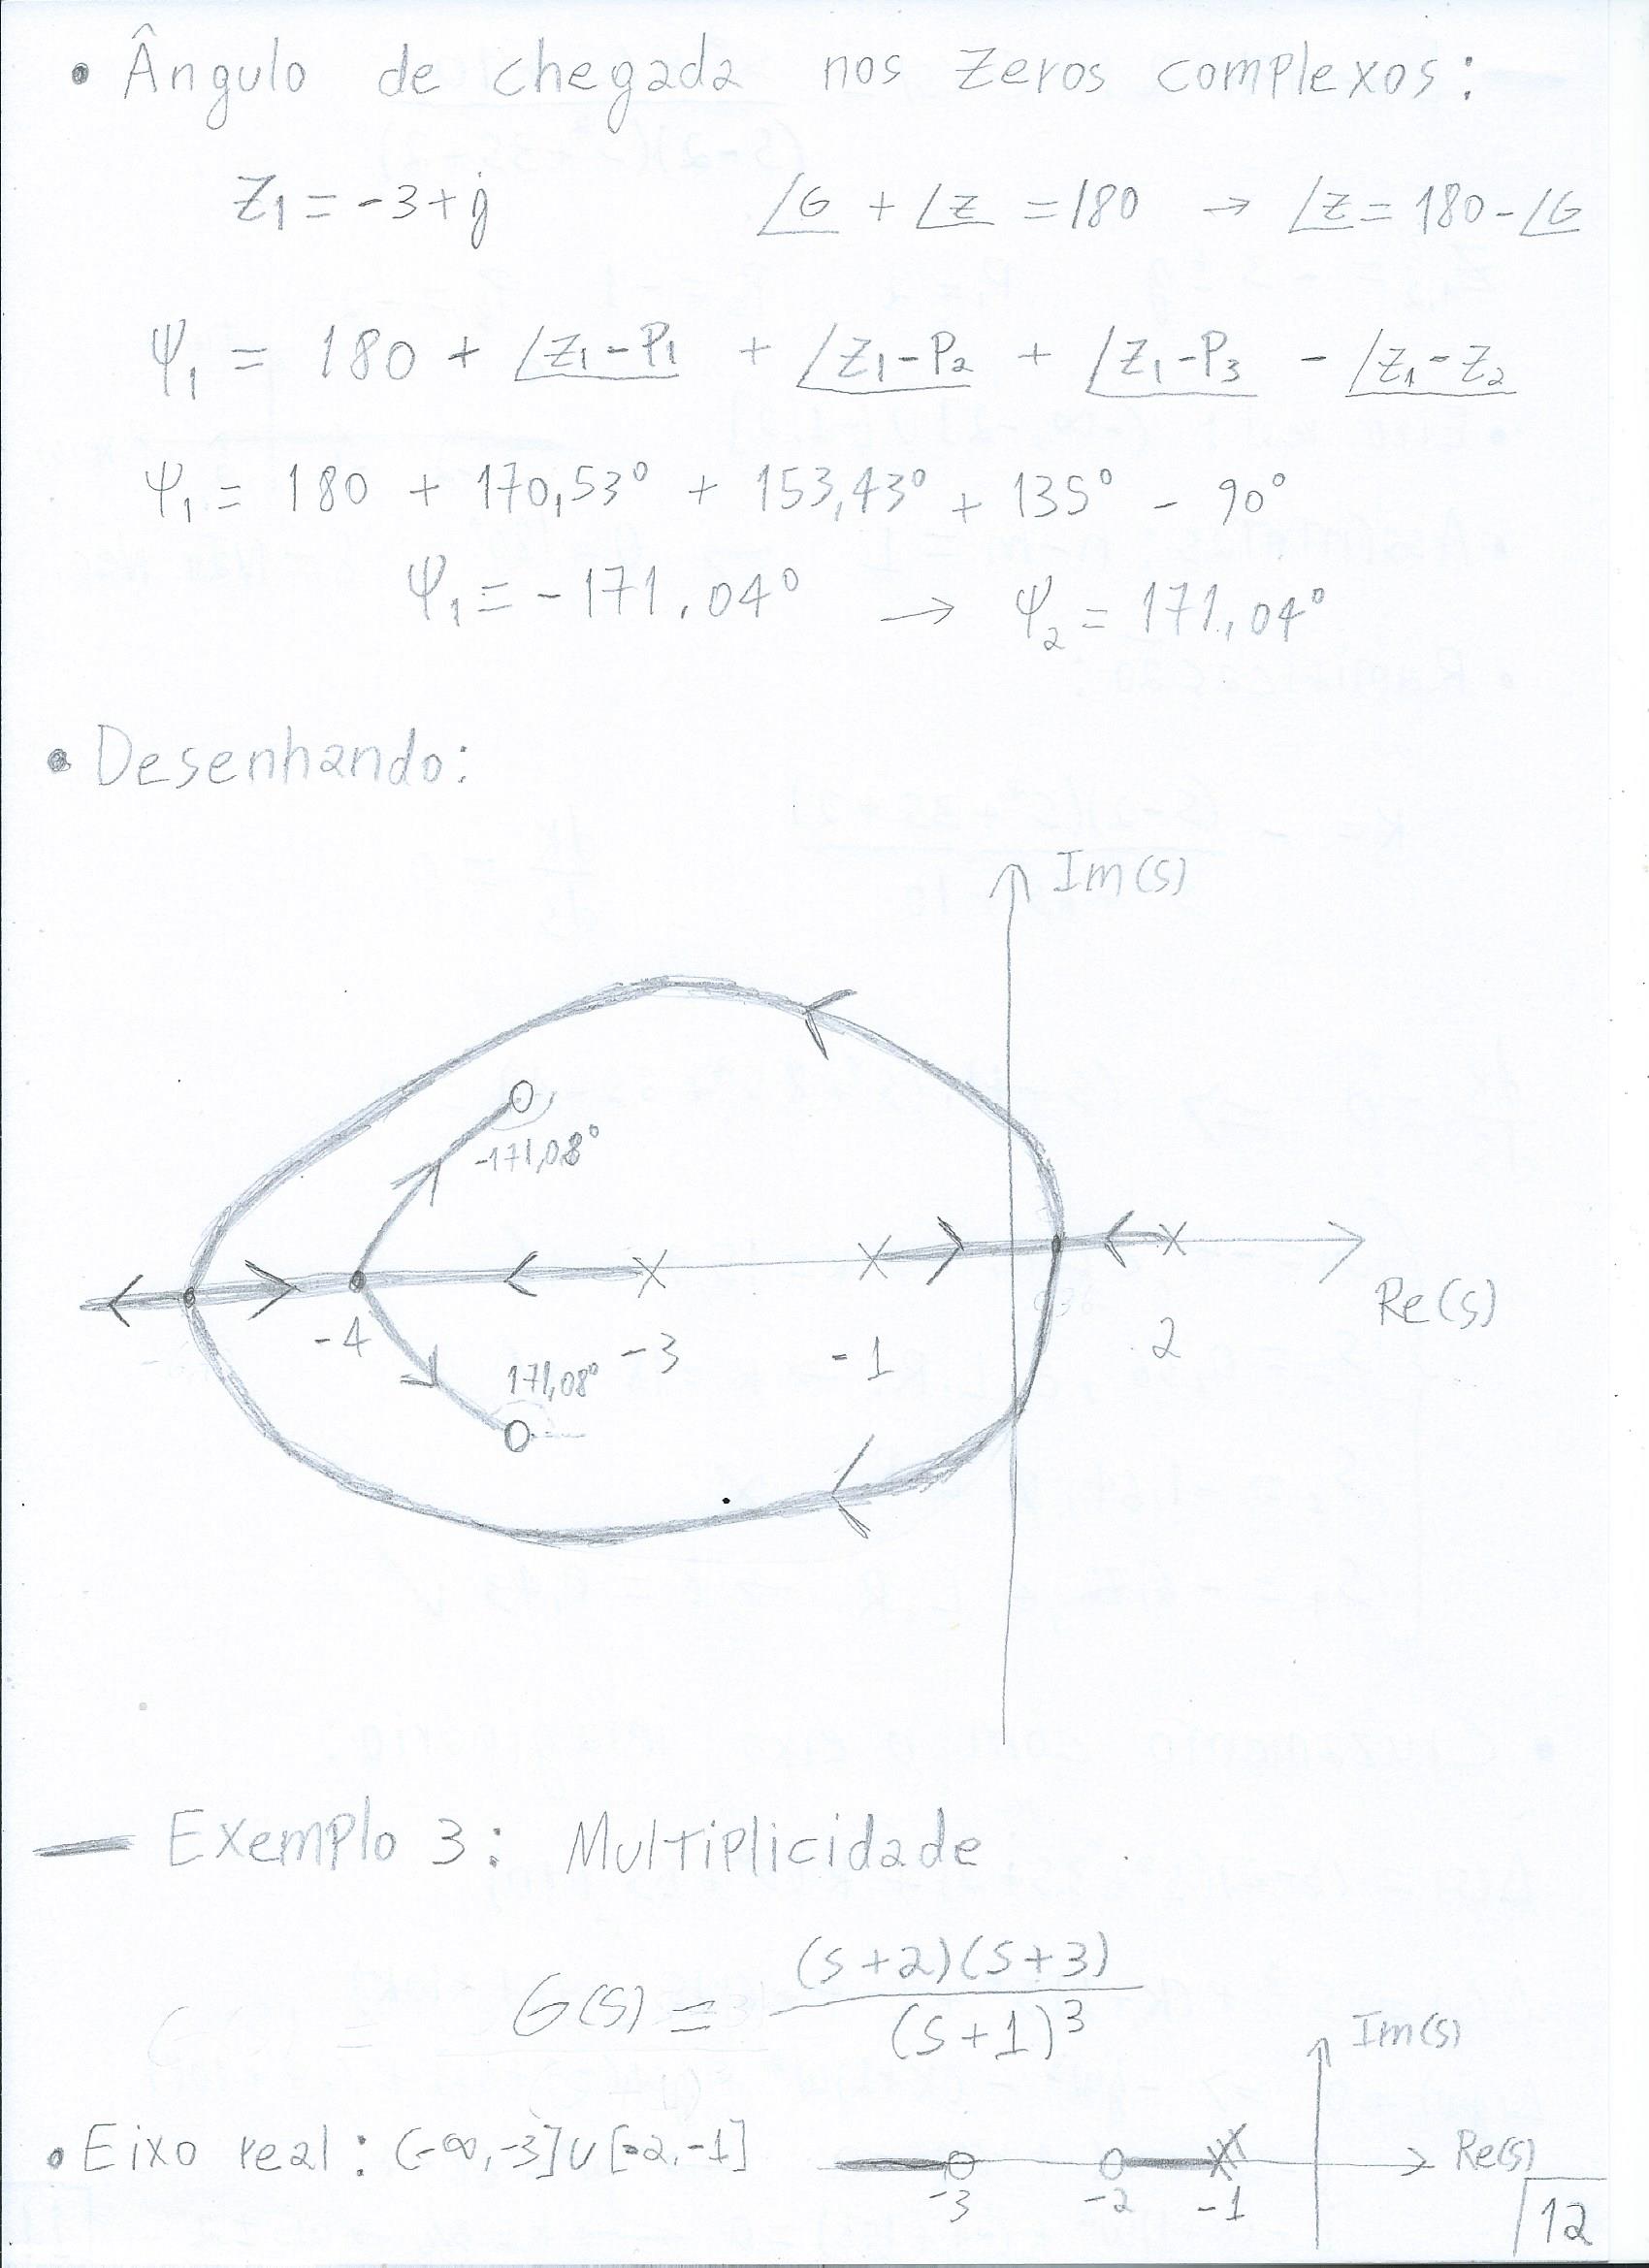 • Ângulo de chegada nos zeros complexos:
Z₁ = -3+j ∠G + ∠Z = 180 → ∠Z = 180 - ∠G
Ψ₁ = 180 + ∠Z₁-P₁ + ∠Z₁-P₂ + ∠Z₁-P₃ - ∠Z₁-Z₂
Ψ₁ = 180 + 170,53° + 153,43° + 135° - 90°
Ψ₁ = -171,04° → Ψ₂ = 171,04°
• Desenhando:
Im(s)
-171,08°
Re(s)
-4 -3 -1 2
171,08°
Exemplo 3: Multiplicidade
G(s) = (s+2)(s+3)
(s+1)³
Im(s)
• Eixo real: (-∞,-3]∪[-2,-1]
Re(s)
-3 -2 -1
12